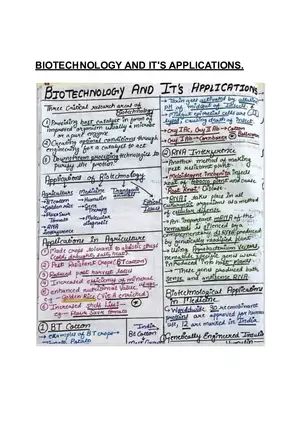 BIOTECHNOLOGY AND IT'S APPLICATIONS.
BIOTECHNOLOGY AND IT'S APPLICATIONS
Three critical research areas of Biotechnology
1) Providing best catalyst in form of
improved organism usually a microbe
or a pure enzyme
2) Creating optimal conditions through
engineering for a catalyst to act
3) Downstream processing technologies to
purify the protein
Applications of Biotechnology
Agriculture Medicine Transgenic
BT cotton
Golden Rice
Flavr Savr
Tomato
RNA
interference
Insulin
Gene
Molecular
diagnosis
Ethical
Issues
Applications In Agriculture
1) Made crops tolerant to abiotic stress
(cold, drought, salt, heat)
2) Pest resistant crops (BT cotton)
3) Reduced post harvest losses
4) Increased efficiency of mineral
5) enhanced nutritional value of crops
eg → Golden Rice (Vit A enriched)
6) Increased shelf life
eg → Flavr Savr tomato
1) BT Cotton
→ examples of BT crops →
Tomato, Potato
India
BT Cotton
pH of midgut of insect
death of insect
Cry IAc, Cry IIAb → Cotton
Cry IAb → Cornborer
2) RNA Interference
→ Another method of making
pest resistant plants
→ Meloidogyne Incognita infects
roots of tobacco plants and causes
"Root Knot" Disease
→ RNAi takes place in all
eukaryotic organisms as a method
of cellular defense
mRNA of the
nematode is silenced by a
complementary dsRNA produced
by genetically modified
→ Using Agrobacterium Vectors,
nematode specific genes were
introduced into host plant
→ These genes produced both
sense and antisense RNA
Biotechnological Applications
In Medicine
→ Worldwide 30 recombinant
proteins are approved for human
use, 12 are marked in India.
Genetically Engineered Insulin